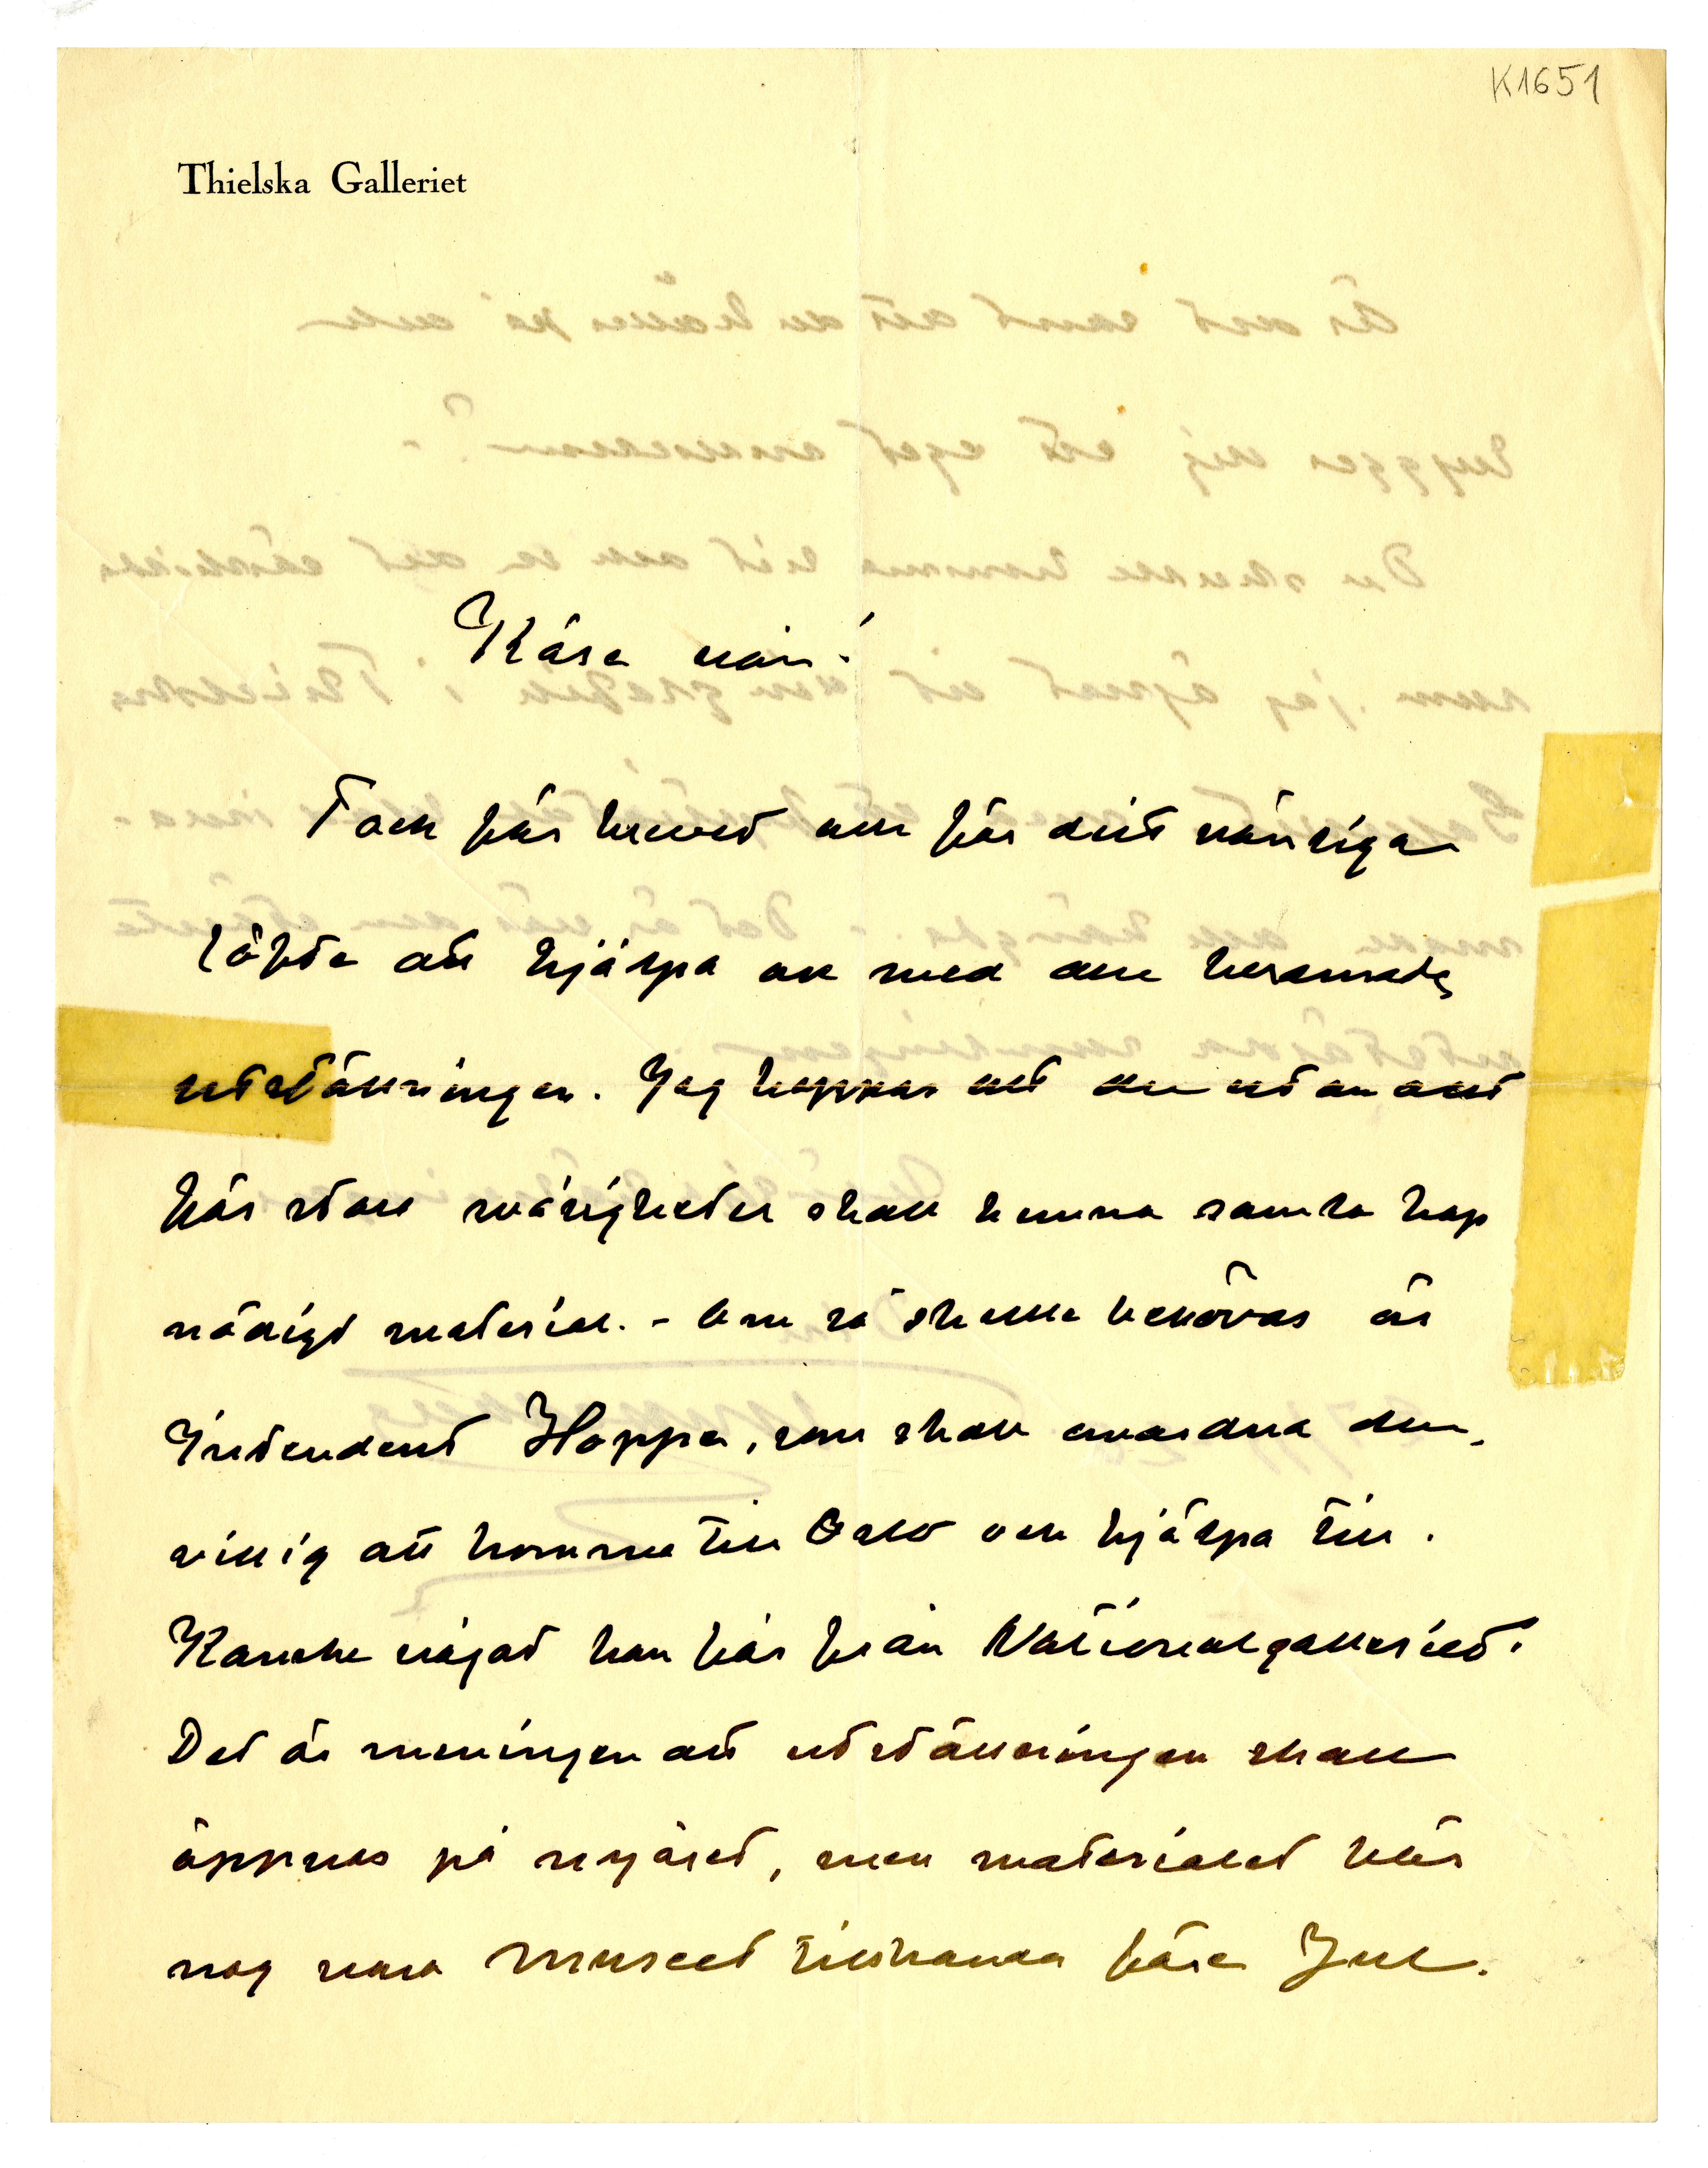 K1651
Thielska Galleriet
Käre vän!
Tack för brevet och för ditt vänliga
löfte att hjälpa oss med den beramade
utställningen. Jag hoppas att du utan allt
för stora svårigheter skall kunna samla hop
nödigt material. - Om så skulle behövas är
Intendent Hoppe, som skall anordna den,
villig att komma till Oslo och hjälpa till.
Kanske något kan fås från Nationalgalleriet.
Det är meningen att utställningen skall
öppnas på nyåret, men materialet bör
nog vara Museet tillhanda före Jul.